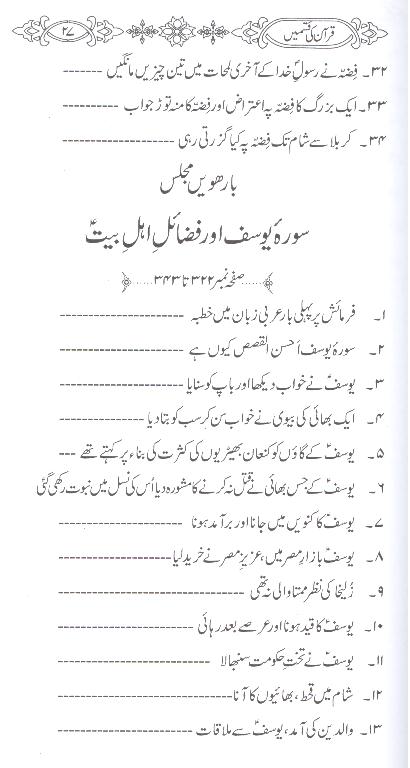 قرآن کی قسمیں
۲۷
۳۲۔ فِضّہ نے رسولِ خدا کے آخری لمحات میں تین چیزیں مانگیں --------
۳۳۔ ایک بزرگ کا فِضّہ پہ اعتراض اور فِضّہ کا منہ توڑ جواب -----------
۳۴۔ کربلا سے شام تک فِضّہ پہ کیا گزرتی رہی ----------------
بارھویں مجلس
سورۂ یوسفؑ اور فضائلِ اہلِ بیتؑ
صفحہ نمبر ۳۲۲ تا ۳۴۳
۱۔ فرمائش پر پہلی بار عربی زبان میں خطبہ --------------------
۲۔ سورۂ یوسف اَحسن القصص کیوں ہے --------------------
۳۔ یوسفؑ نے خواب دیکھا اور باپ کو سنایا --------------------
۴۔ ایک بھائی کی بیوی نے خواب سن کر سب کو بتا دیا --------------
۵۔ یوسفؑ کے گاؤں کو کنعان بھیڑیوں کی کثرت کی بناء پر کہتے تھے ---
۶۔ یوسفؑ کے جس بھائی نے قتل نہ کرنے کا مشورہ دیا اُس کی نسل میں نبوت رکھی گئی
۷۔ یوسفؑ کا کنویں میں جانا اور برآمد ہونا --------------------
۸۔ یوسفؑ بازارِ مصر میں، عزیزِ مصر نے خرید لیا-----------------
۹۔ زُلیخا کی نظر ممتا والی نہ تھی --------------------------
۱۰۔ یوسفؑ کا قید ہونا اور عرصے بعد رہائی -------------------
۱۱۔ یوسفؑ نے تختِ حکومت سنبھالا ----------------------
۱۲۔ شام میں قحط، بھائیوں کا آنا-------------------------
۱۳۔ والدین کی آمد، یوسفؑ سے ملاقات --------------------